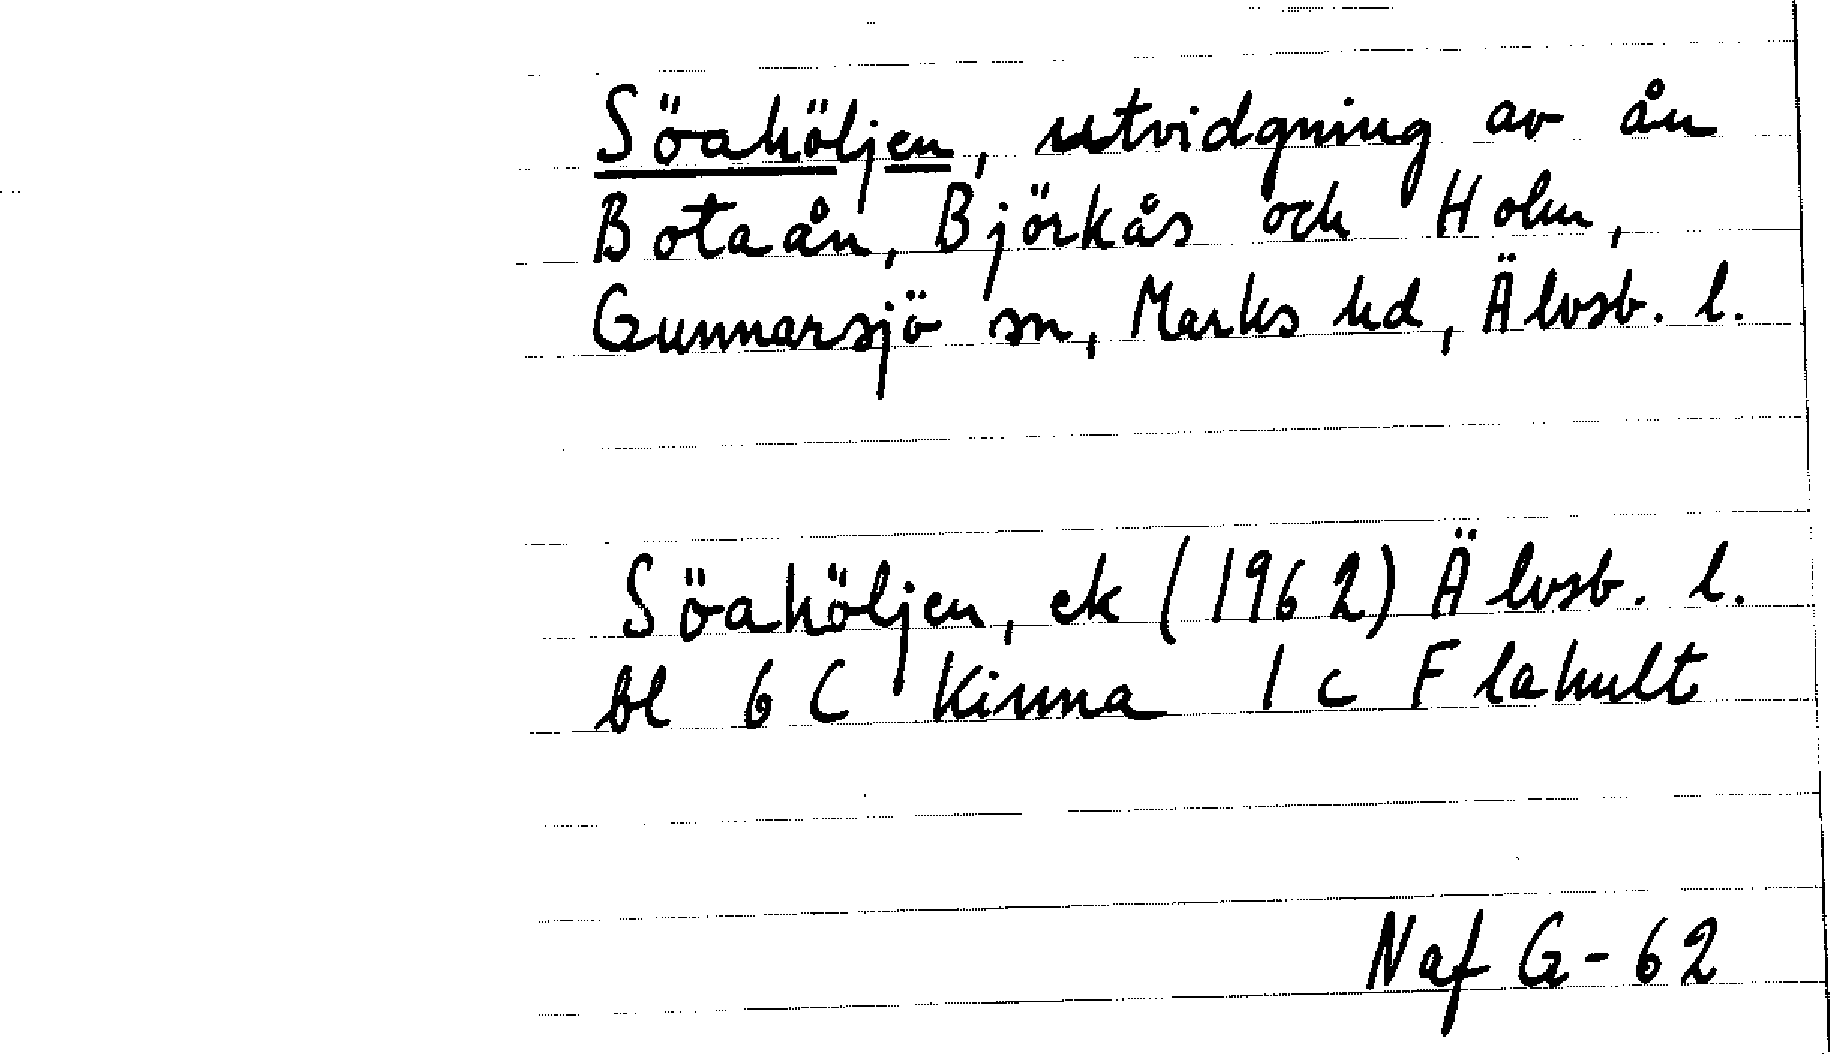 Söahöljen, utvidgning av ån
Botaån, Björkås och Holm,
Gunnarsjö sn, Marks hd, Älvsb. l.
Söahöljen, ek (1962) Älvsb. l.
bl 6 C Kinna 1 c Flahult
Naf G-62